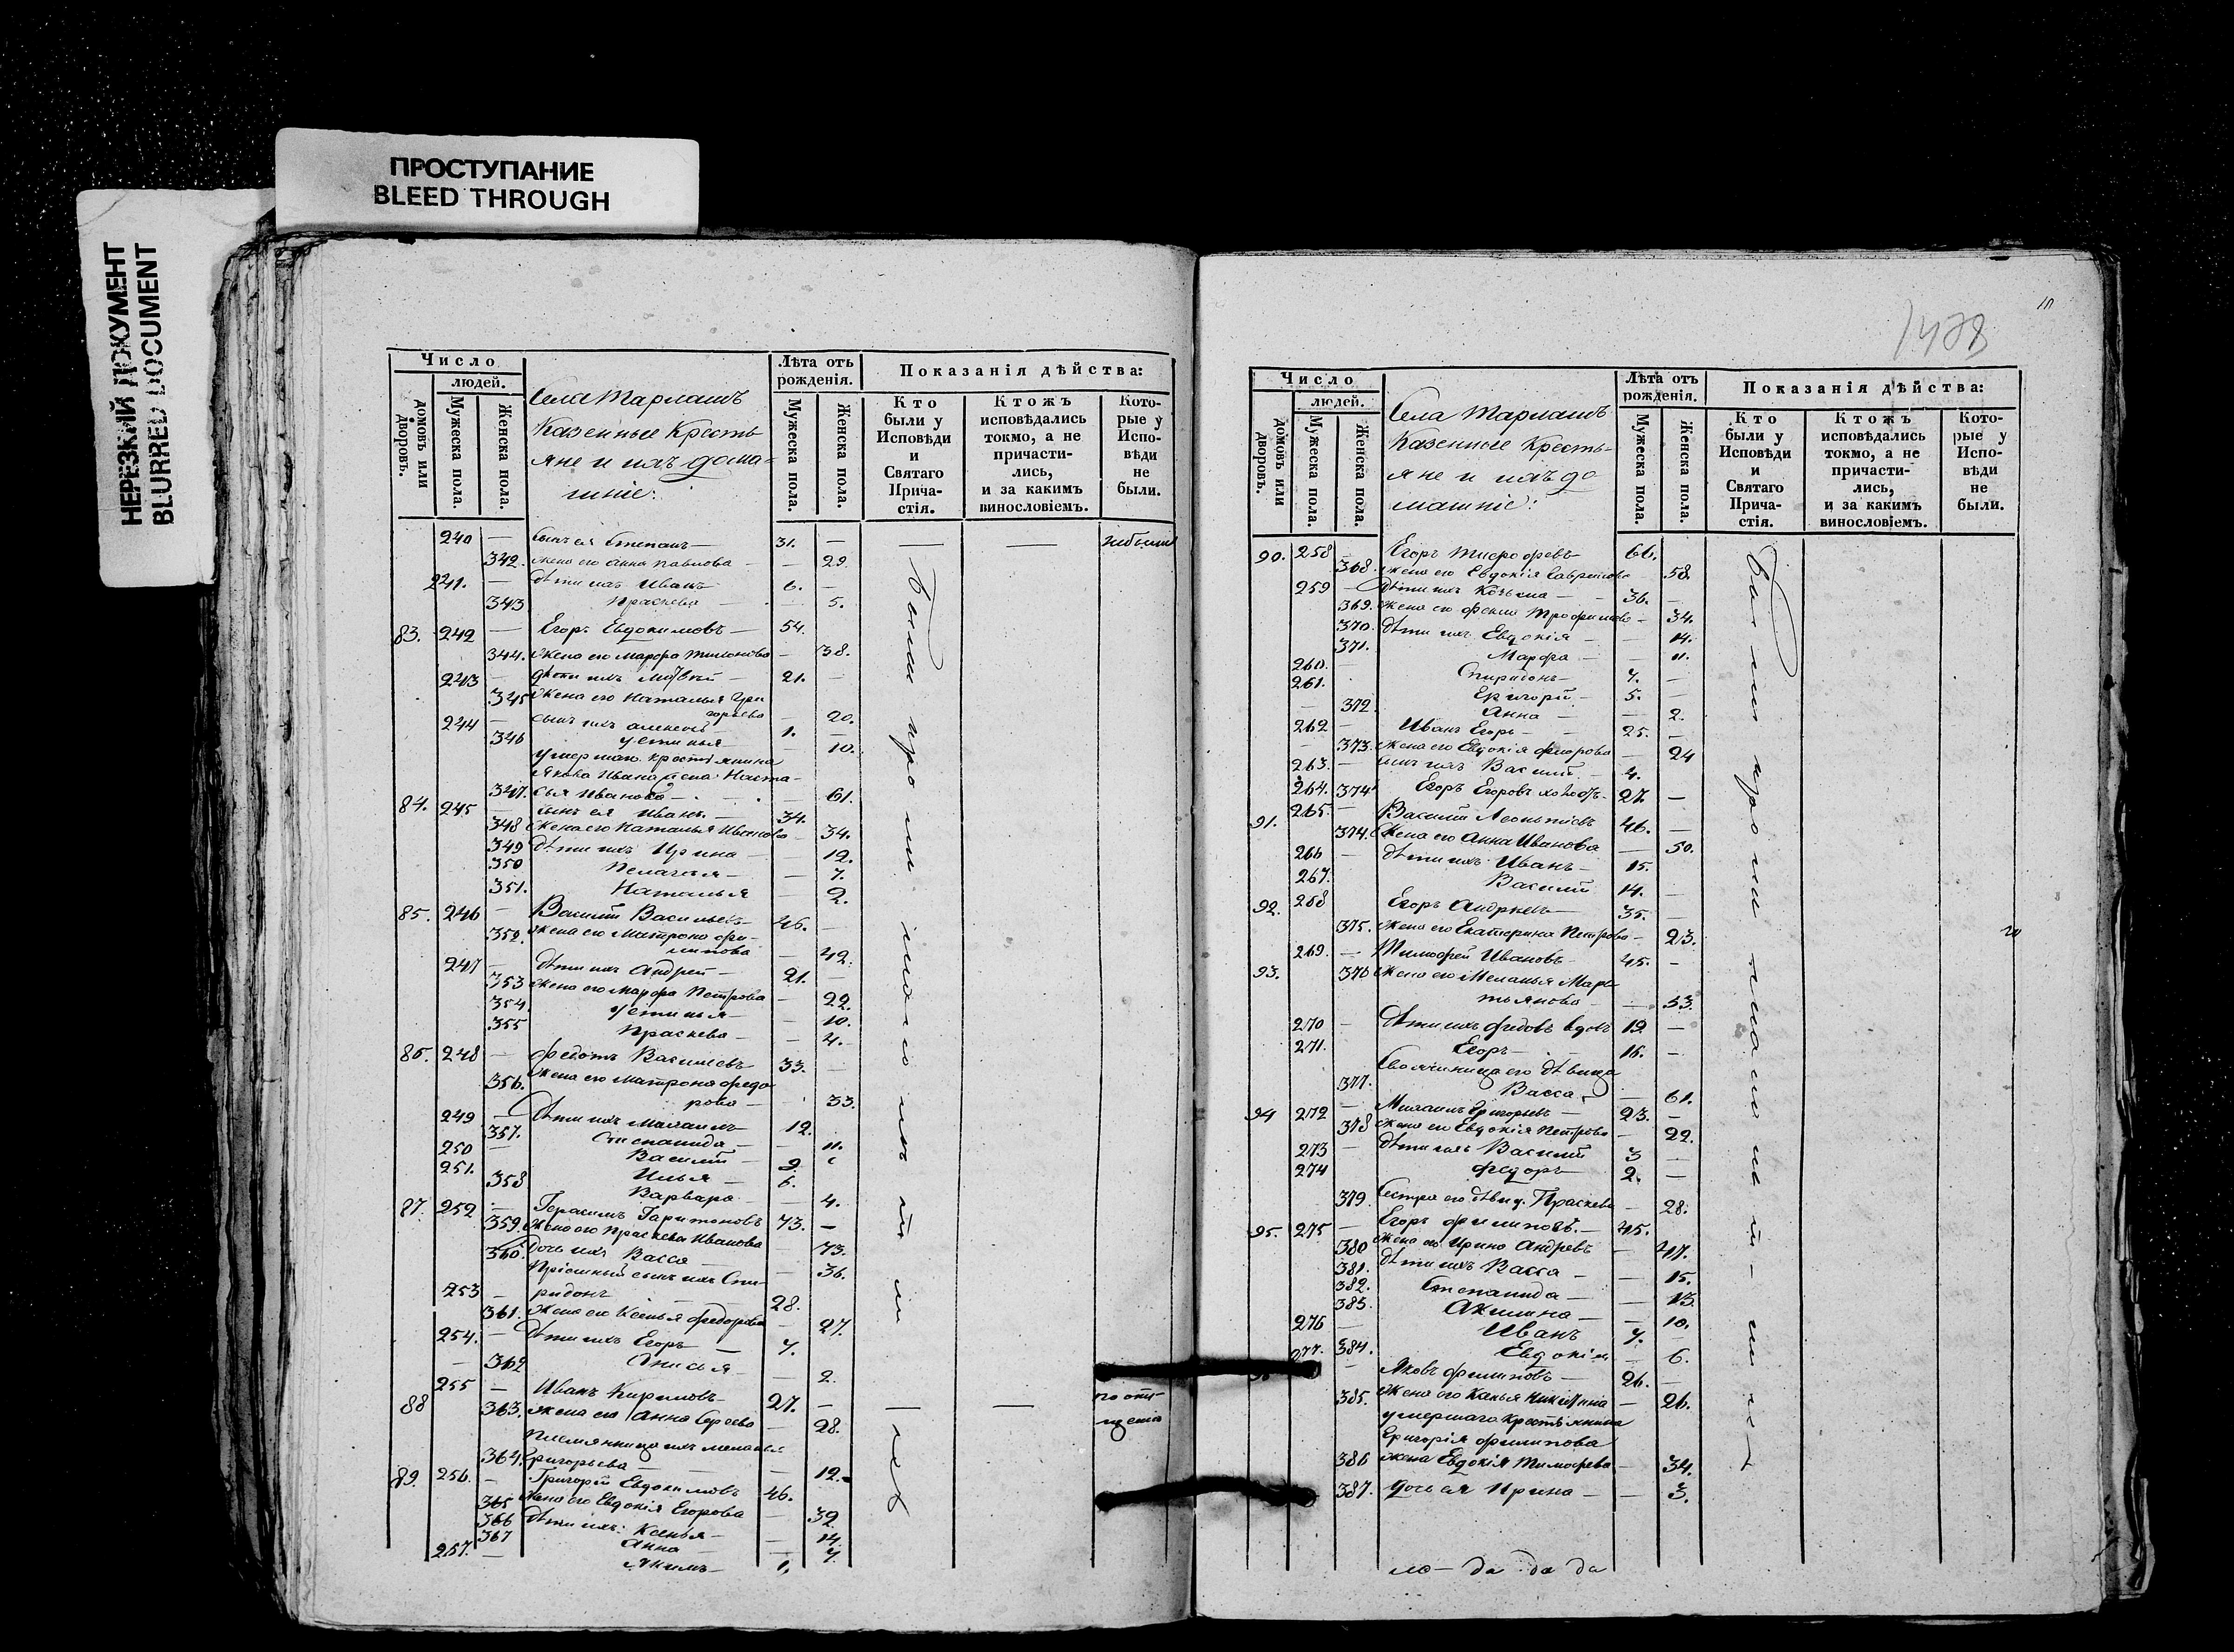 ПРОСТУПАНИЕ
BLEED THROUGH
НЕРЕЗКИЙ ДОКУМЕНТ
BLURRED DOCUMENT
Число
людей.
домовъ или дворовъ.
Мужеска пола.
Женска пола.
Села Тарлашъ
Казенные Кресть
яне и ихъ дома-
шніе:
Лѣта отъ рожденія.
Мужеска пола.
Женска пола.
Показанія дѣйства:
Кто были у Исповѣди и Святаго Прича-стія.
Ктожъ исповѣдались токмо, а не причасти-лись, и за какимъ винословіемъ.
Кото-рые у Испо-вѣди не были.
240 — Сынъ ея Степанъ — 31. —
342. жена его Анна Павлова — — 29.
241. — дѣти ихъ Иванъ 6. —
343 Праскева — 5.
83. 242 — Егоръ Евдокимовъ — 54.
344. жена его Марфа Тихонова — 38.
243 — дѣти ихъ 21. —
345 жена его Наталья Гри
горьева — 20.
244 — сынъ ихъ Алексѣй — 1. —
346 Устинья — — 10.
умершаго крестьянина
Якова Иванова жена Наста-
347. сья Иванова — — 61.
84. 245 — сынъ ея Иванъ — 34.
348 жена его Наталья Иванова — 34.
349 дѣти ихъ Ирина — 12.
350 Пелагея — — 7.
351. Наталья — 2.
85. 246 — Василий Васильевъ 46. —
352. жена его Матрона Фи-
липова — 42.
247 — дѣти ихъ Андрей — 21. —
353 жена его Марфа Петрова — 22.
354. Устинья — — 10.
355 Праскева — — 4.
86. 248 — Федотъ Васильевъ 33. —
356. жена его Матрона Федо
рова — 33.
249 — дѣти ихъ Михаилъ 12.
357. Степанида — — 11.
250 — Василий — 9.
251. Илья — 6.
358 Варвара — — 4.
87. 252 — Герасимъ Харитоновъ 73. —
359. жена его Праскева Иванова — 73.
360. дочь ихъ Васса — 36.
Пріемный сынъ ихъ Спи-
253 — ридонъ — 28.
361. жена его Ксенья Федорова — 27.
254. — дѣти ихъ Егоръ — 7.
— 362 Анисья — — 2.
88 255 — Иванъ Кириловъ — 27. —
363. жена его Анна Сергѣева — 28.
Племянница ихъ Меланья
364. Григорьева — — 12.
89. 256. — Григорій Евдокимовъ 46.
365 жена его Евдокія Егорова — 39.
366 дѣти ихъ: Ксенья — — 14.
367 Анна — — 7.
257. — Якимъ — 1.
Были
Число
людей.
домовъ или дворовъ.
Мужеска пола.
Женска пола.
Села Тарлашъ
Казенные Кресть-
яне и ихъ до
машніе:
Лѣта отъ рожденія.
Мужеска пола.
Женска пола.
Показанія дѣйства:
Кто были у Исповѣди и Святаго Прича-стія.
Ктожъ исповѣдались токмо, а не причасти-лись, и за какимъ винословіемъ.
Кото-рые у Испо-вѣди не были.
90. 258 Егоръ Тимофеевъ 66.
368. жена его Евдокія Гаврилова — 58.
259 — дѣти ихъ Козьма — 36. —
369. жена его Фекла Трофимова — 34.
370. дѣти ихъ Евдокія — — 14.
371. Марфа — — 11.
260. — Спиридонъ — 7. —
261. Григорій — 5. —
372. Анна — — 2.
262 — Иванъ Егоръ — 25. —
373. жена его Евдокія Федорова — 24
263. — сынъ ихъ Василий — 4.
264. 374 Егоръ Егоровъ холостъ — 27. —
91. 265. — Василий Леонтиевъ 46. —
374. жена его Анна Иванова — 50.
266 — дѣти ихъ Иванъ — 15.
267. Василий 14. —
92. 268 Егоръ Андреевъ — 35. —
375. жена его Екатерина Петрова — 23.
93. 269. — Тимофей Ивановъ — 45. —
376 жена его Меланья Мар-
тьянова — 53.
270 — дѣти ихъ Федоръ вдовъ 19. —
271. Егоръ — 16. —
Своячиница его дѣвица
377. Васса — 61.
94 272 — Михаилъ Григорьевъ — 23. —
378 жена его Евдокія Петрова — 22.
273 — дѣти ихъ Василий 3 —
274 Федоръ — 2. —
379. Сестра его дѣвиц. Праскева — 28.
95. 275 — Егоръ Филиповъ — 45.
380 жена его Ирина Андреева — 47.
381. дѣти ихъ Васса — — 15.
382. Степанида — — 13.
383. Акилина — — 10.
276 — Иванъ 7. —
384. Евдокія — 6.
277. — Яковъ Филиповъ — 26. —
385. жена его — 26.
умершаго крестьянина
Григорія Филипова
386 жена Евдокія Тимофеева — 34.
387. дочь ея Ирина — — 3.
Были
1478